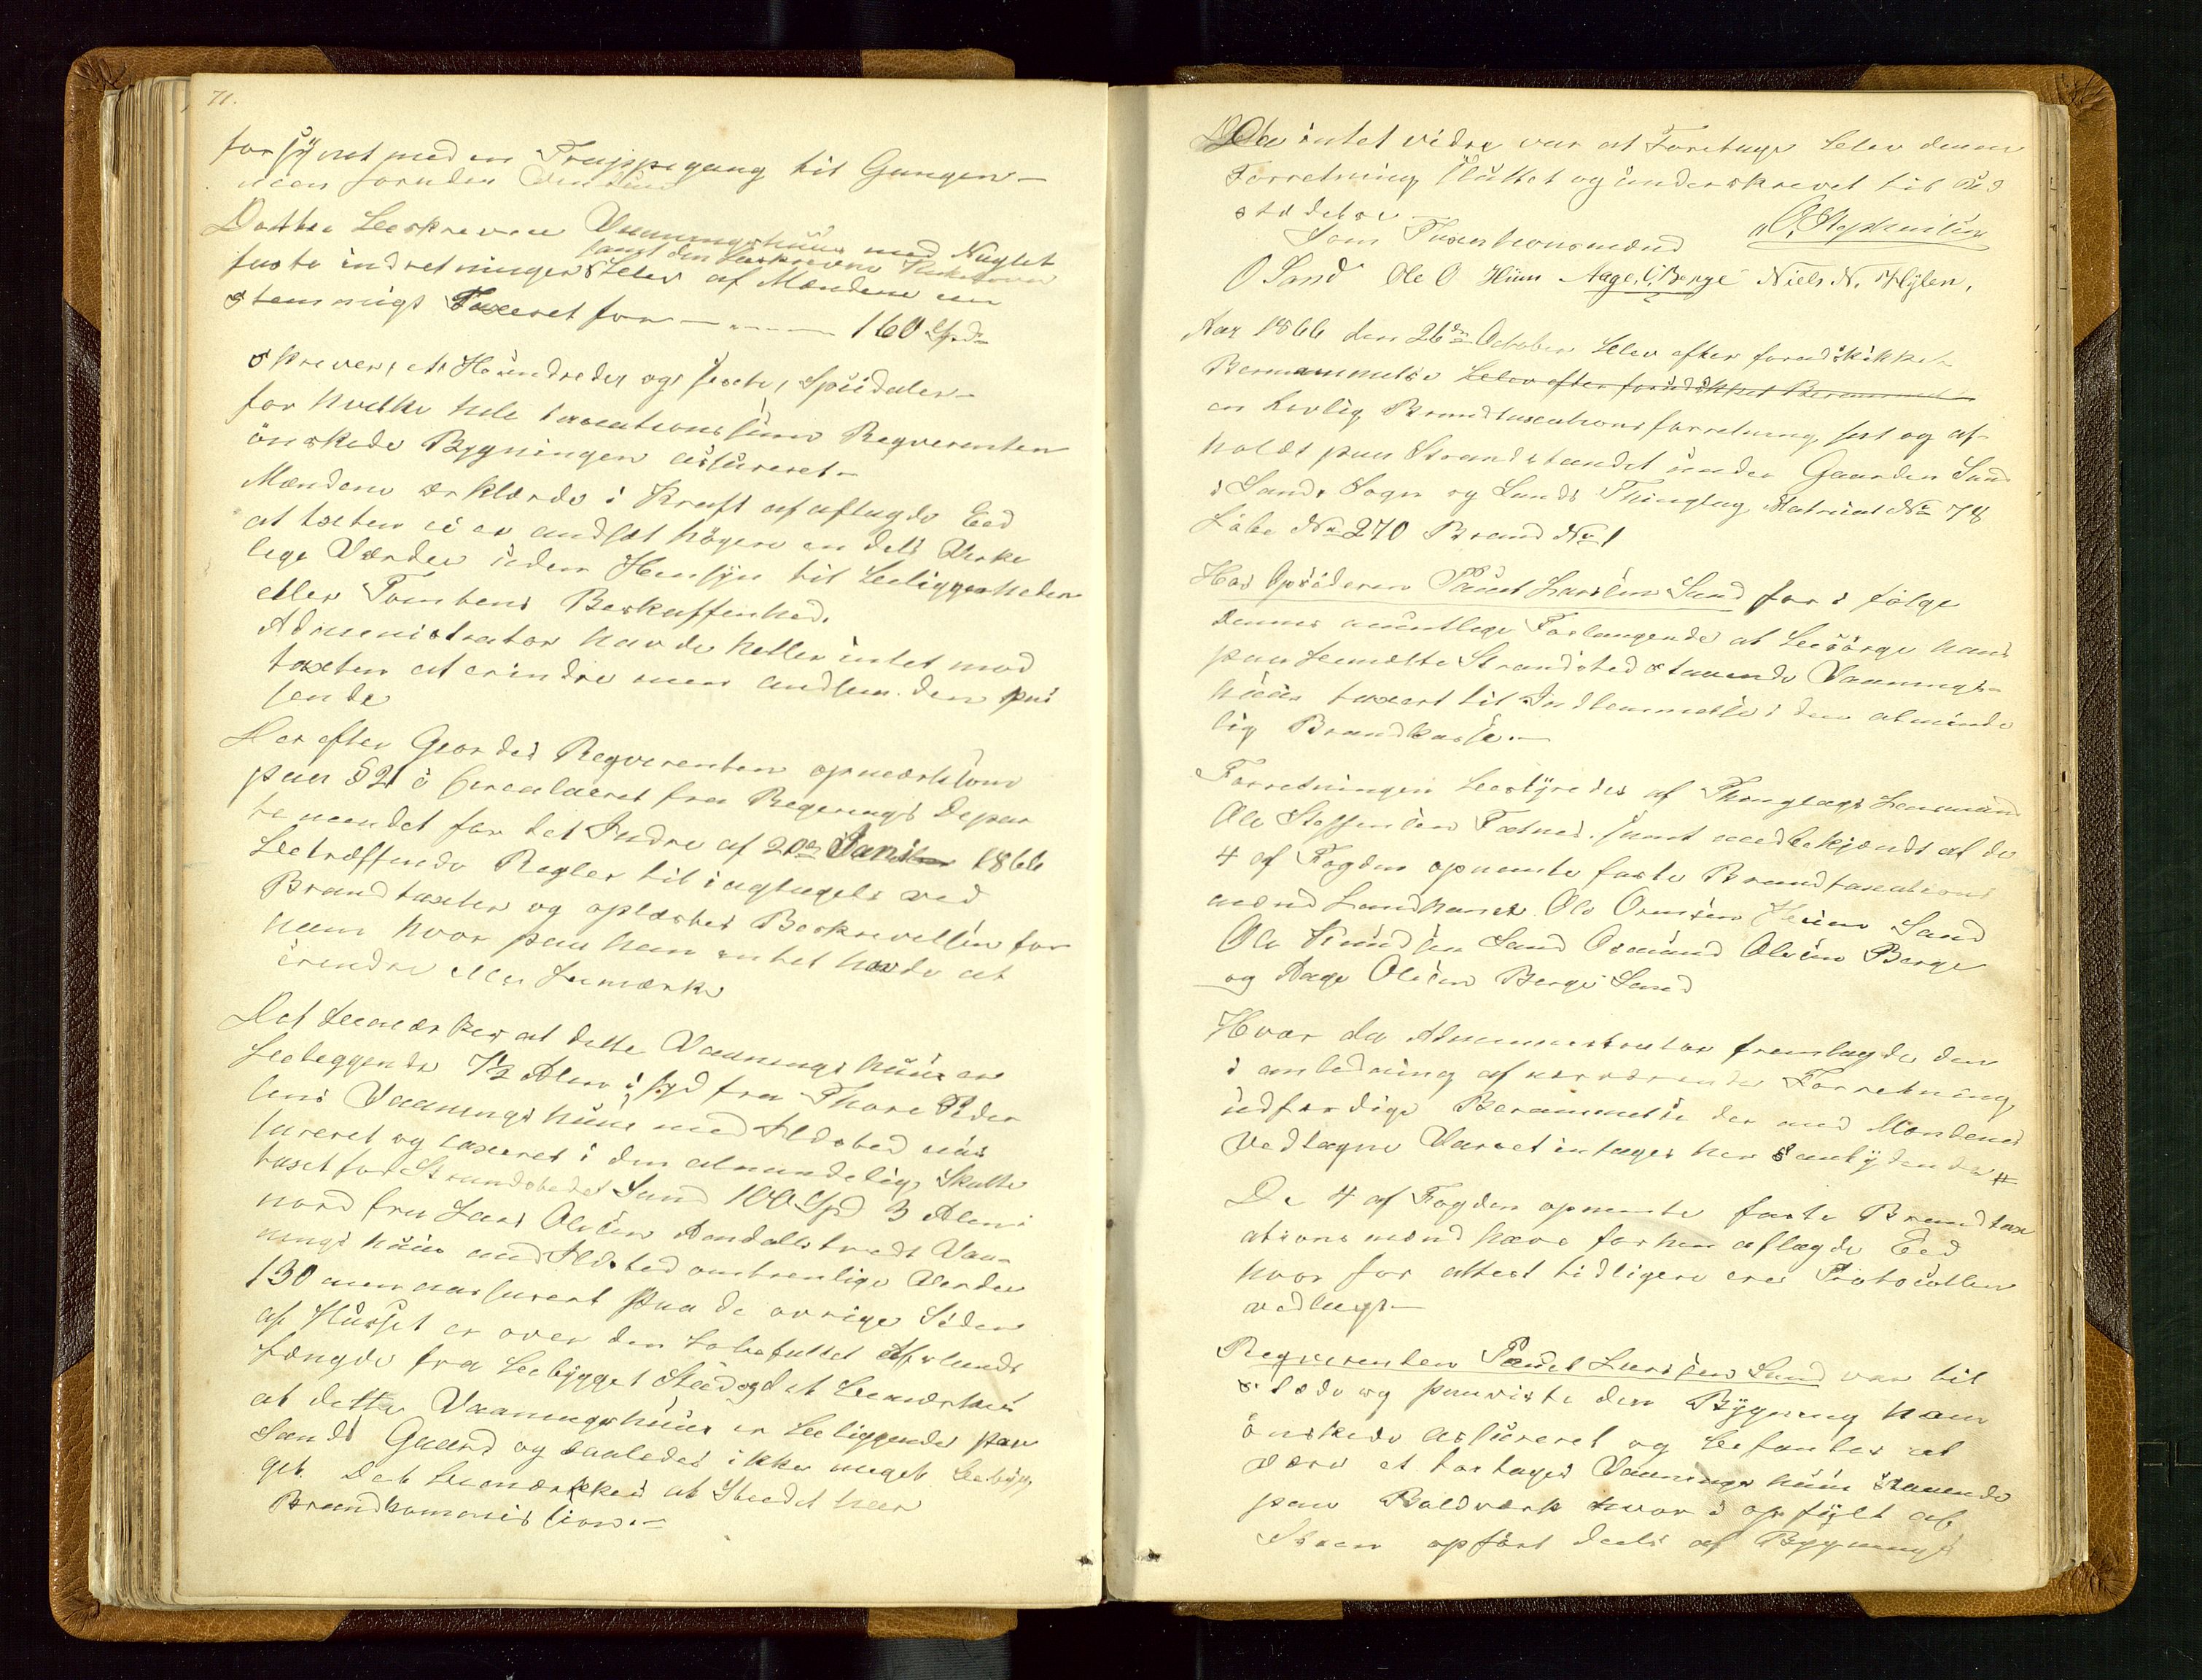 71.
forsÿnet med en Trappegang til Gangen –
men foruden
Dette beskreven Vaaningshuus med Naglet
samt den beskreven Kakelovn
faste indretninger blev af Mændene een
stemmigt Taxeret for — — — 160 Spd
skriver, et Hundrede, og sexti, Spesidaler –
for hvilke hele taxations sum Reqverenten
önskede Bygningen assureret –
Mændene erklærde i Kraft af aflagde Eed
at taxten ei er andsat högere en dets Verke
lige Værdie uden Hensÿn til beliggenheden
eller Tomtens Beskaffenhed.
Administrator havde heller intet mod
taxten at erindre men andsaa den pas
sende
Der efter Giordes Reqverenten opmærksom
paa § 21 i Circulaeret fra Regjerings Depar
tementet for det Indre af 20de Jani 1866
betræffende Regler til iagtagels ved
Brandtaxter og oplæstes Beskrivelsen for
ham hvor paa ham intet havde at
erindre eller bemærke
Det bemærkes at dette Vaanings huus er
beleggende 7½ Alen i syd fra Thore Peder
sens Vaaningshuus med Ildsted uas
sureret og taxeret i den almindelig Skatte
taxt for Strandstedet Sand 100 Spd 3 Alen i
nord fra Lars Olsen Aandalls tredt Vaa-
nings huus med Ildsted omtrentlige Verdie
130 men uassureret paa de ovrige Siden
af Husset er over den lovbefallet Afstands
længde fra bebÿgget Sted og det bemærkes
at dette Vaaningshuus er beliggende paa
Sands Gaard og saaledes ikke meget bebÿg
get. Det bemærkkes at Stedet har
Brandkommission. –
Da intet vidre var at Foretage blev denne
Forretning sluttet og underskrevet til Sted
stædelse
O. Stephensen
Som Taxtationsmænd
O Sand Ole O Hiim Aage O. Berge Niels N. Hylen.
Aar 1866 den 26de October blev efter forudskikket
Berammelse blev efter forudskikket Berammelse
en lovlig Brandtaxationsforretning, sat og af-
holdt paa Strandstædet under Gaarden Sand
i Sands Sogn og Sands Thinglag, Matricul No 78
Löbe No 270 Brand No 1
Hos Opsideren Paul Larsen Sand for i fölge
dennes muntlige Forlangende at besörge hans
paa bemelte Strandsted staaende Vaanings-
huus taxert til Indlemmelse i den almindे
lig Brandkasse. –
Forretningen bestÿredes af Thinglags Lensmand
Ole Steffensen Fatnes. samt medbekjendt af de
4 af Fogden opnemte faste Brandtaxations
mænd Landhandl. Ole Ormsen Hiim Sand
Ole Knudsen Sand Osmund Olsen Berge
og Aage Olsen Berge Sand
Hvor da Administrator fremlagde den
i anledning af nærværende Forretning,
udfærdige Berammelse der med Mændenes
Vedtagne Varsel intages her saalydende #
De 4 af Fogden opnemte faste Brandtax
ations mænd have forhen aflagde Eed
hvor for attest tidligere er Protocollen
vedlagt –
Reqverenten Paul Larsen Sand var til
stede og paaviste den Bÿgning ham
önskede assureret og befantes at
være et totages Vaanings huus staaende
paa Boldværk hvor i opfÿlt af
Steen opfört deels af Bÿgnings